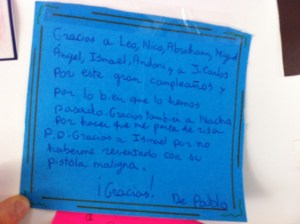 Gracias a Leo, Nico, Abraham, Miguel
Ángel, Ismael, Andoni y a J. Carlos
Por este gran cumpleaños y
por lo bien que lo hemos
pasado. Gracias también a Nacho
Por hacer que me parta de risa
P.D. Gracias a Ismael por no
haberme reventado con su
pistola maligna.
¡Gracias! De Pablo